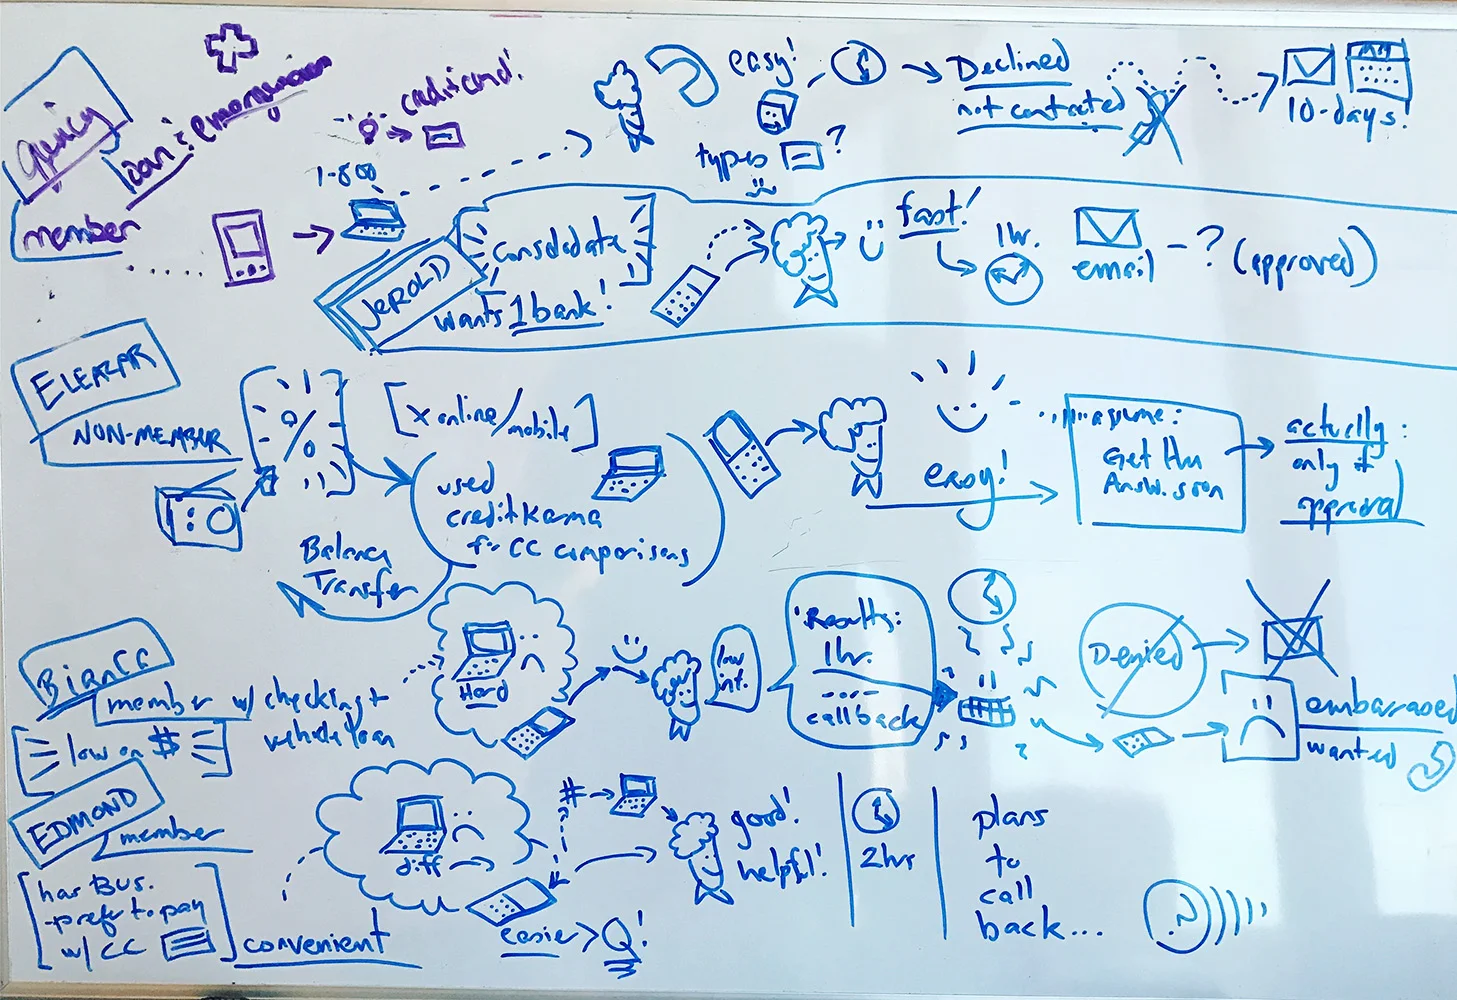 Quincy
loan: emergencies
credit card!
member
1-800
easy!
types ?
Declined
not contacted
10-days!
JEROLD
consolodate
wants 1 bank!
fast!
1hr.
email - ? (approved)
ELEAZAR
NON-MEMBER
%
[x online/mobile]
used
creditkarma
for CC comparisons
Balance
Transfer
easy!
assume:
Get thru
Answ. soon
actually:
only if
approval
Bianca
member w/ checking +
vehicle loan
low on $
Hard
low
int.
Results:
1hr.
----
callback
Denied
embarrased
wanted
EDMOND
member
has Bus.
-prefer to pay
w/ CC
convenient
diff
#
easier > !
good!
helpful!
2hrs
plans
to
call
back...